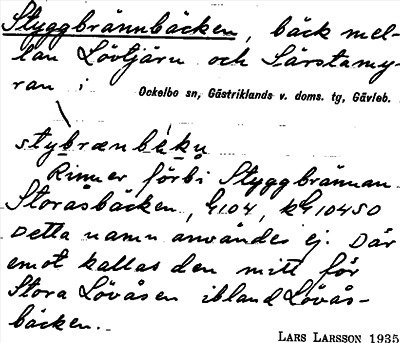 Styggbrännbäcken, bäck mel-
lan Lövtjärn och Särstamy-
ran i
Ockelbo sn, Gästriklands v. doms. tg, Gävleb.
stybrænbéku
Rinner förbi Styggbrännan
Storåsbäcken, G104, kG10450
Detta namn användes ej. Där
emot kallas den mitt för
Stora Lövåsen ibland Lövås-
bäcken.
LARS LARSSON 1935